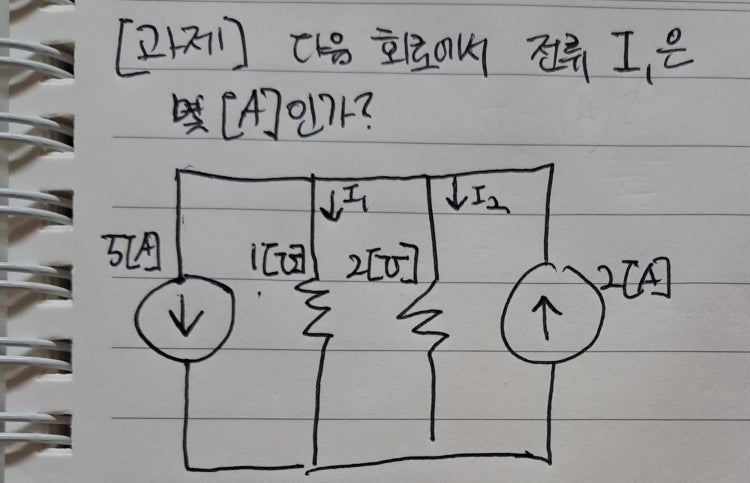 [과제] 다음 회로에서 전류 I₁은
몇 [A]인가?
↓I₁
↓I₂
5[A]
1[℧]
2[℧]
2[A]